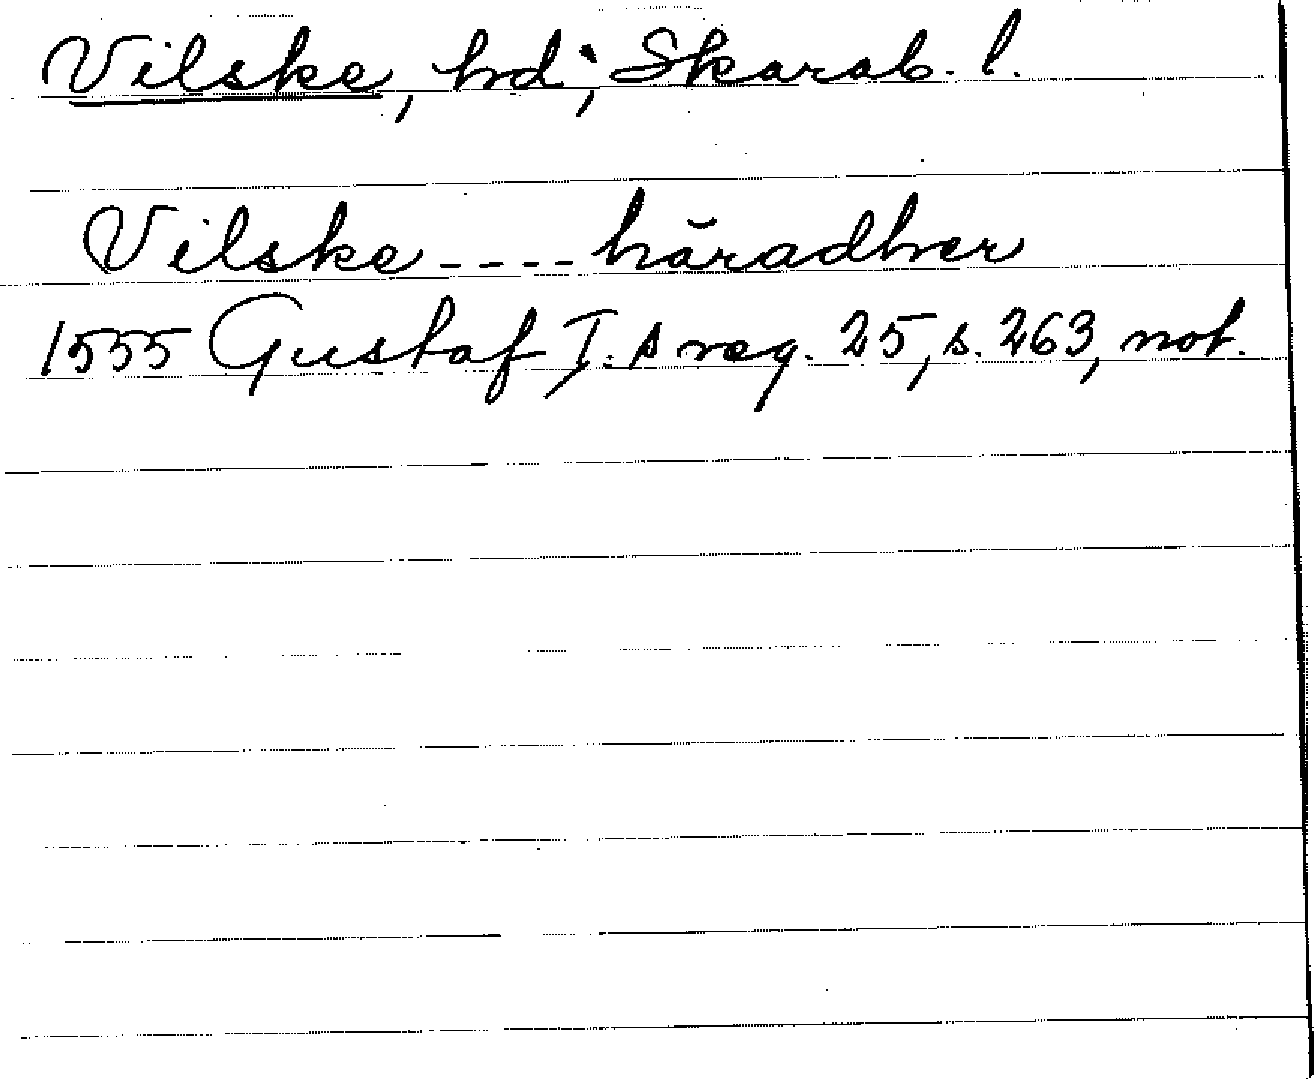 Vilske, hd; Skarab. l.
Vilske ---- häradher
1555 Gustaf I:s reg. 25, s. 263, not.